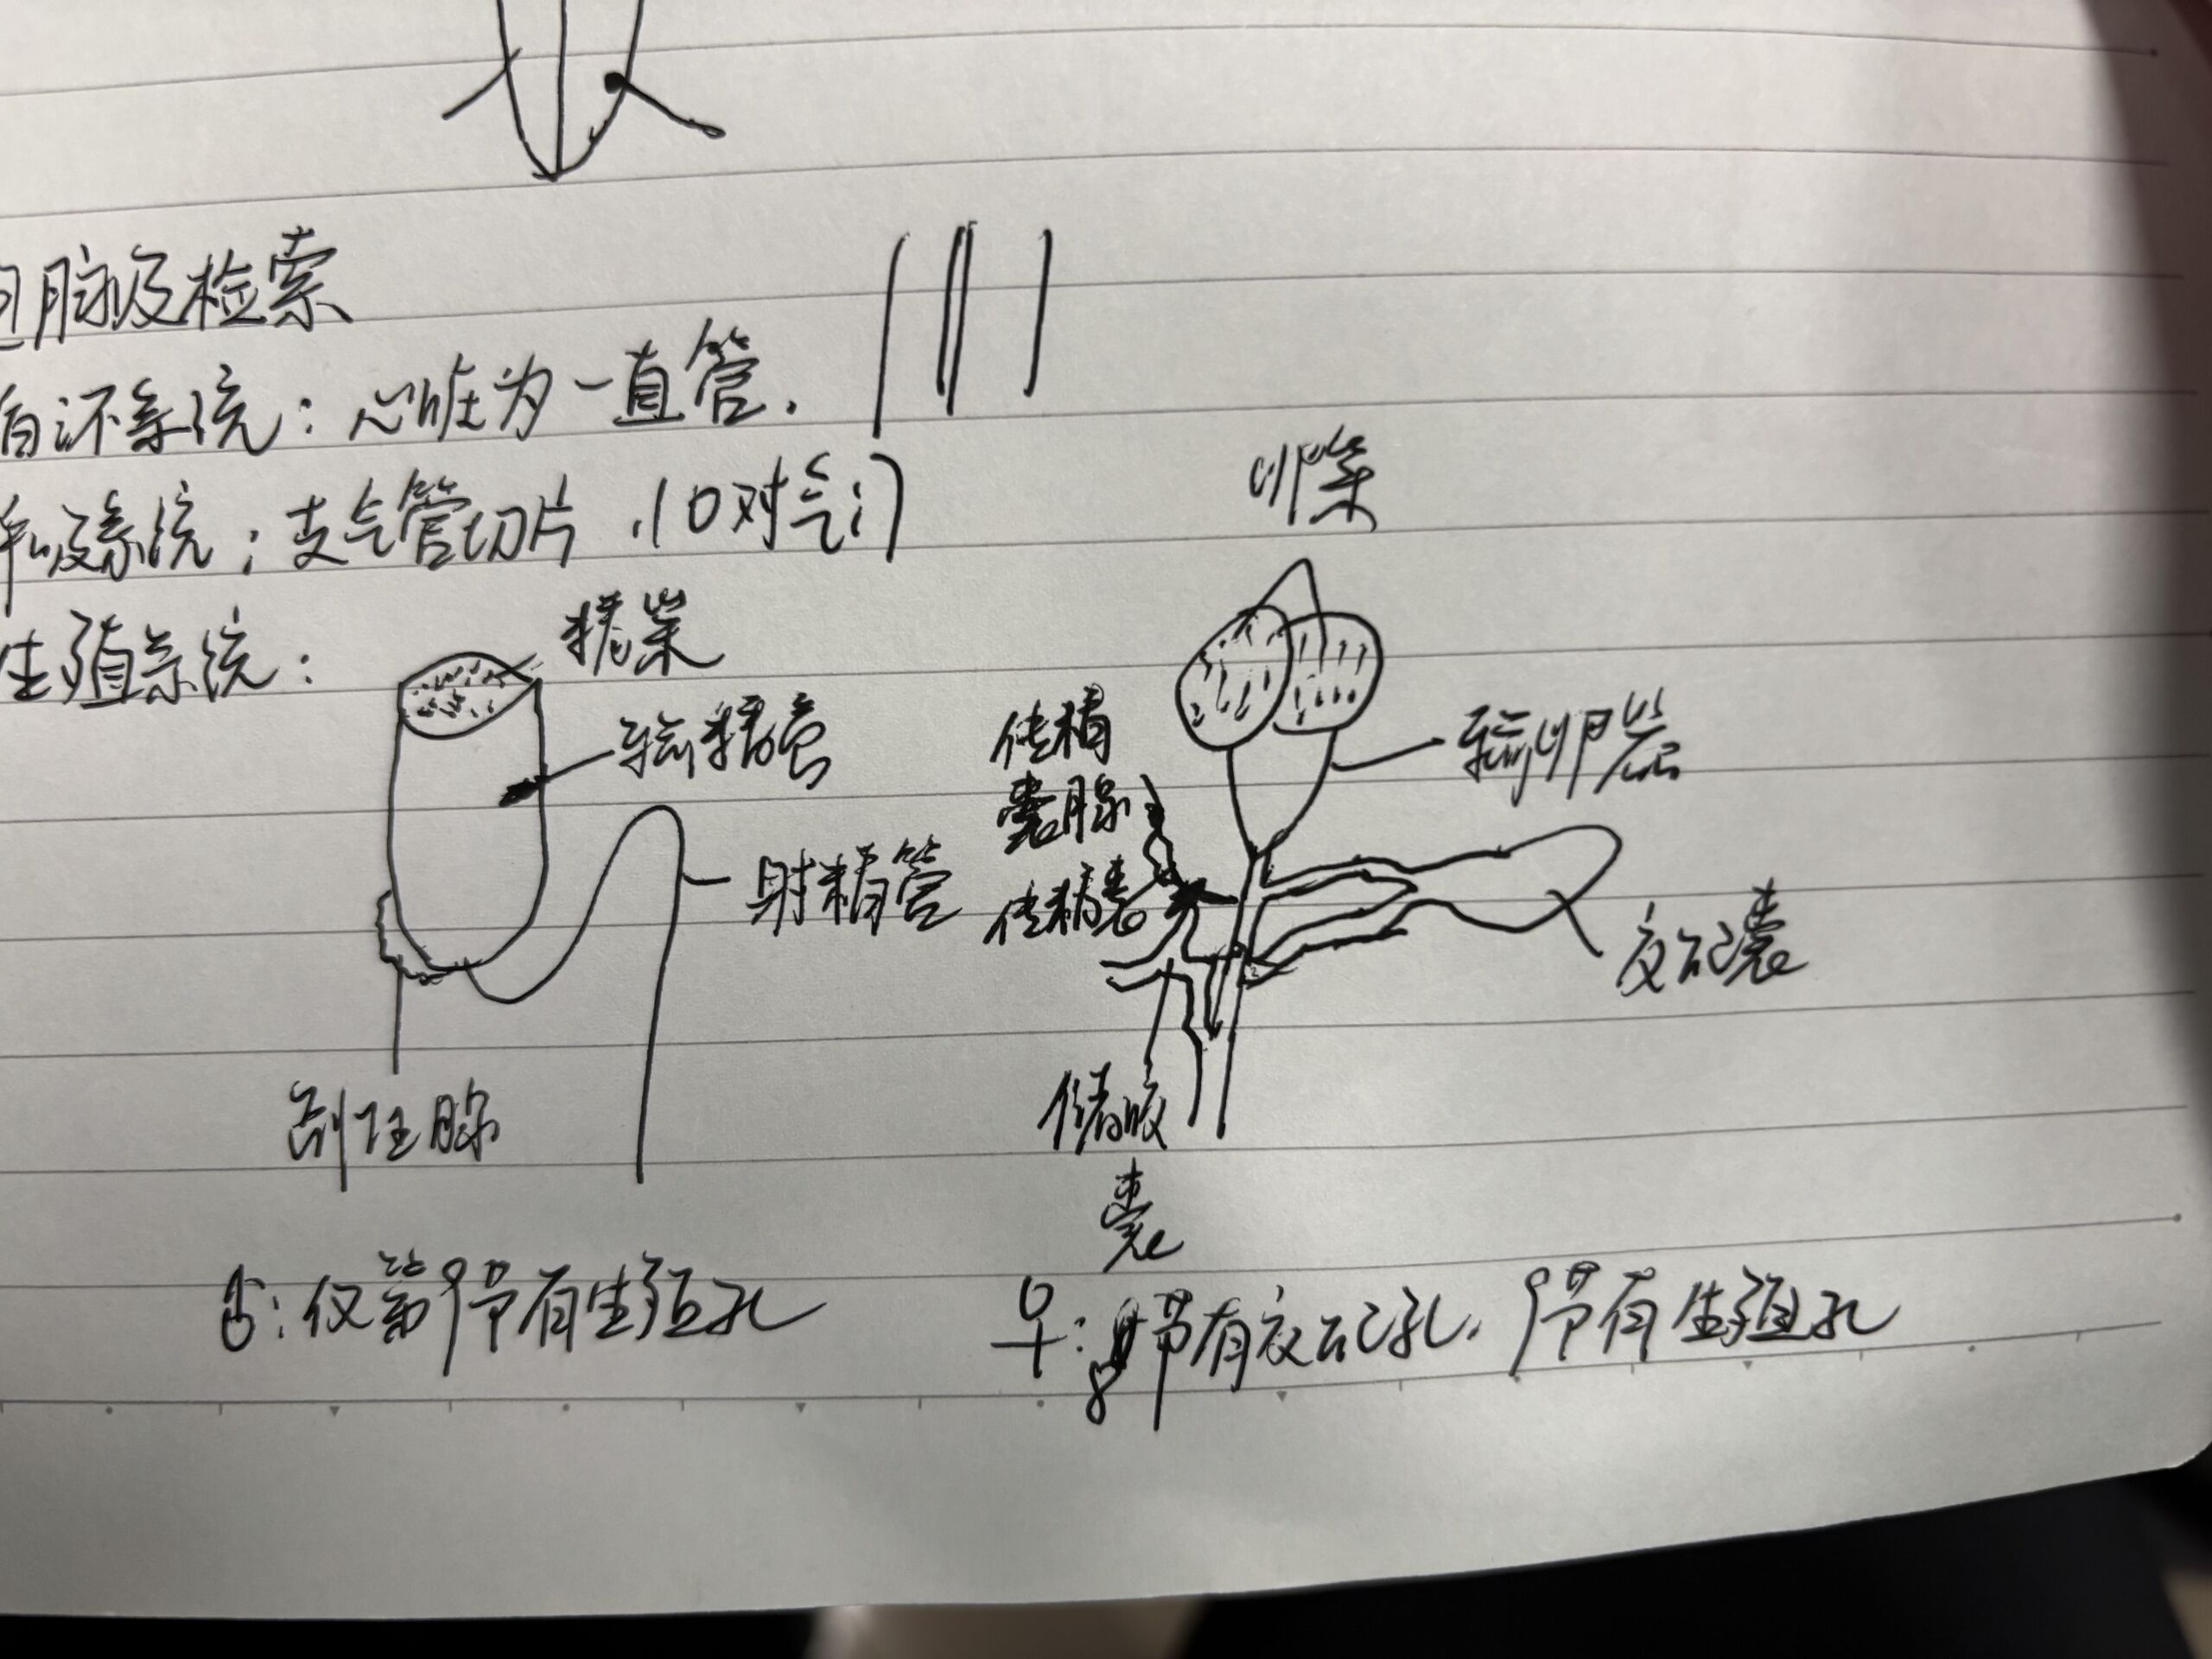 脉及检索
循环系统：心脏为一直管.
呼吸系统；支气管切片，10对气门
生殖系统：
精巢
输精管
射精管
副性腺
♂：仅第9节有生殖孔
卵巢
输卵管
传精
囊腺
传精囊
交配囊
储胶
囊
♀：8节有交配孔，9节有生殖孔